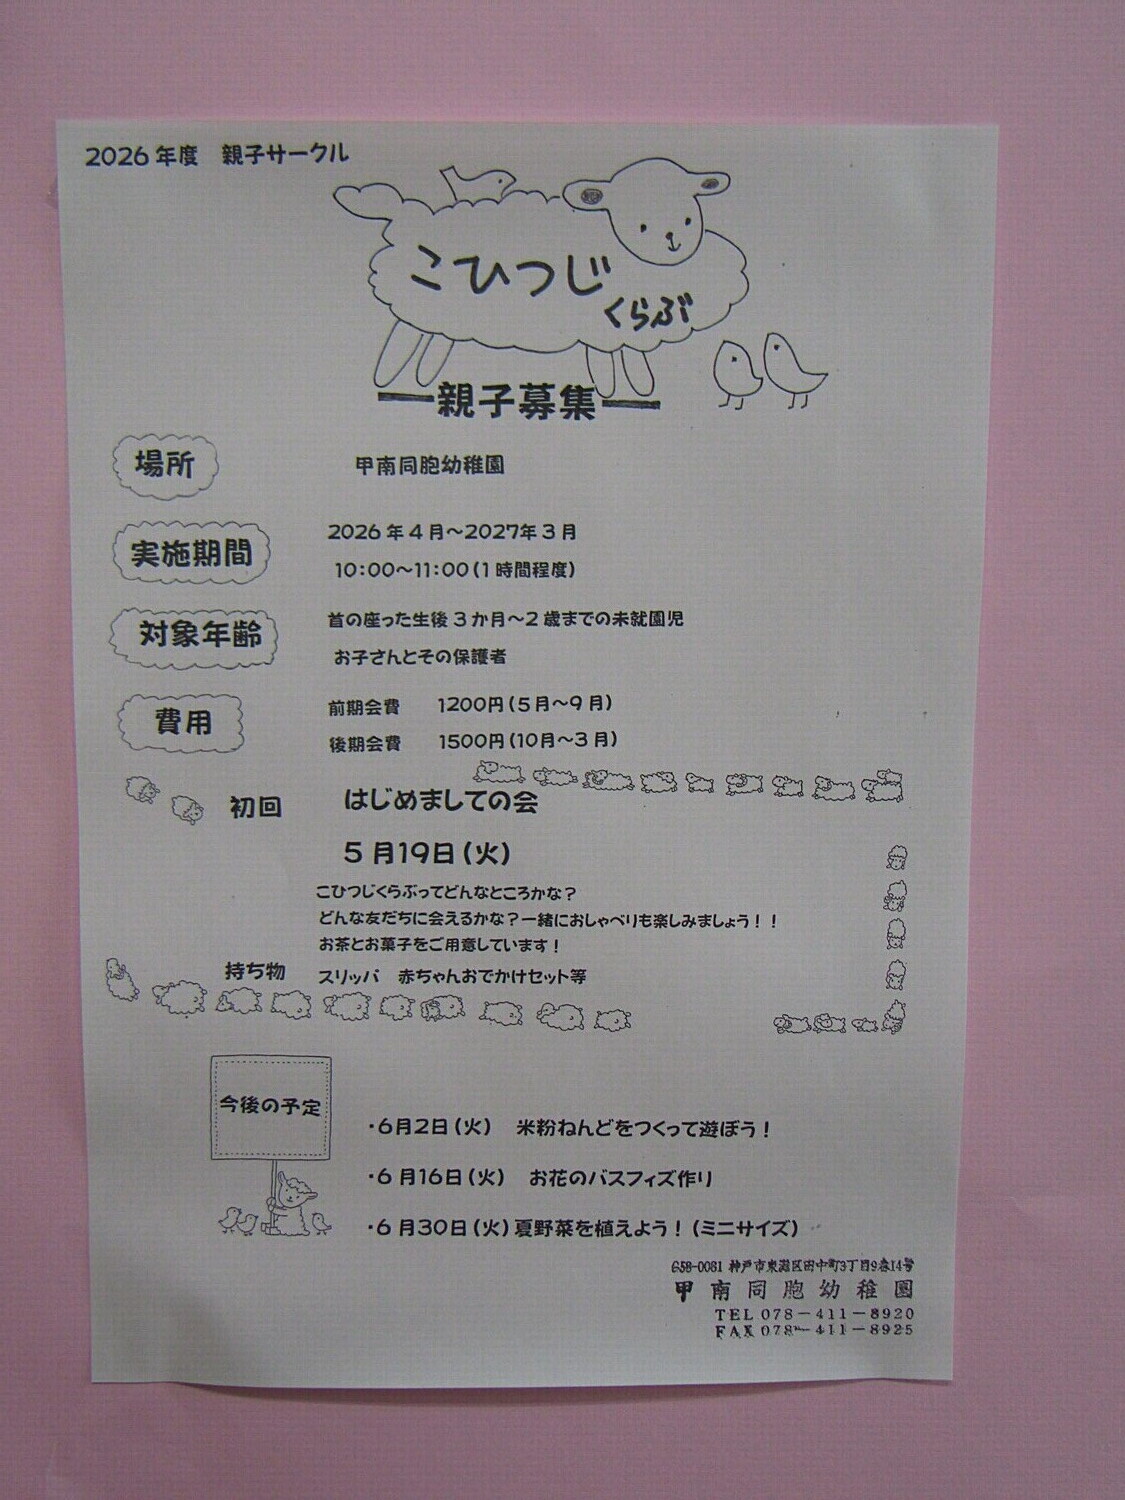 2026年度 親子サークル
こひつじ
くらぶ
ー親子募集ー
場所 甲南同胞幼稚園
実施期間 2026年4月～2027年3月
10:00～11:00(1時間程度)
対象年齢 首の座った生後3か月～2歳までの未就園児
お子さんとその保護者
費用 前期会費 1200円(5月～9月)
後期会費 1500円(10月～3月)
初回 はじめましての会
5月19日(火)
こひつじくらぶってどんなところかな?
どんな友だちに会えるかな?一緒におしゃべりも楽しみましょう!!
お茶とお菓子をご用意しています!
持ち物 スリッパ 赤ちゃんおでかけセット等
今後の予定
・6月2日(火) 米粉ねんどをつくって遊ぼう!
・6月16日(火) お花のバスフィズ作り
・6月30日(火)夏野菜を植えよう!(ミニサイズ)
658-0081 神戸市東灘区田中町3丁目9番14号
甲南同胞幼稚園
TEL 078-411-8920
FAX 078-411-8925